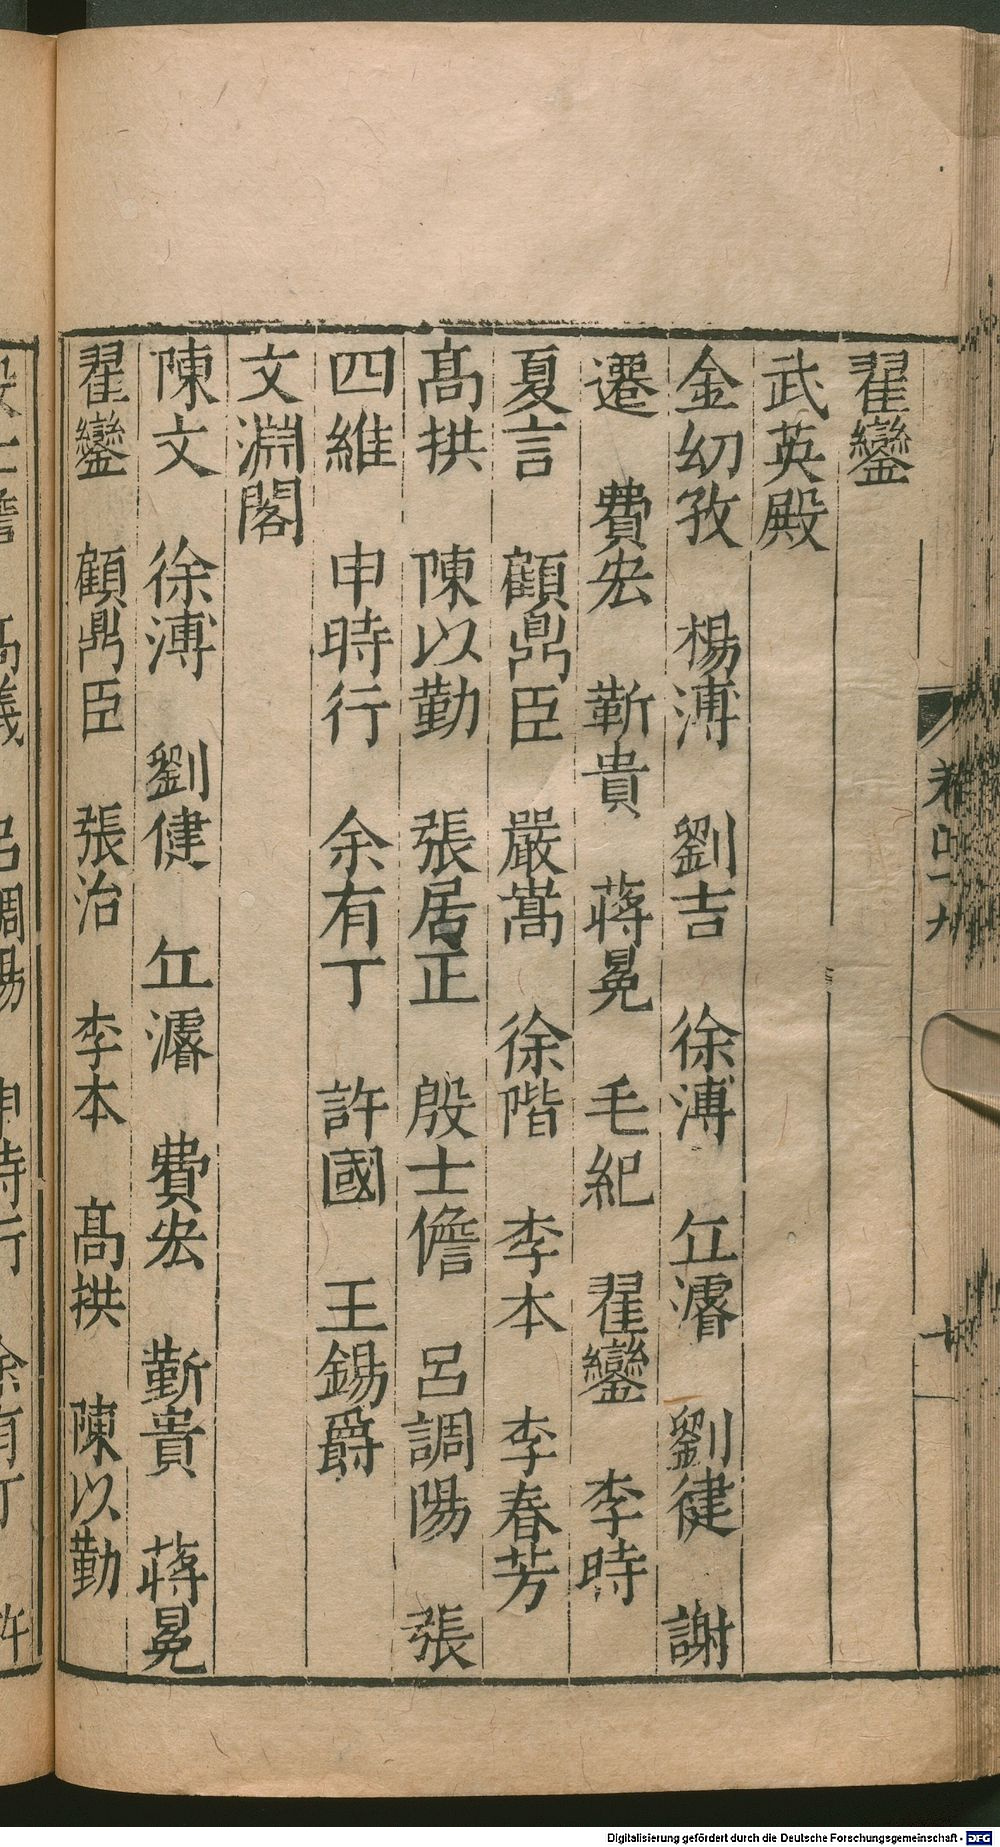 翟鑾
武英殿
金幼孜　楊溥　劉吉　徐溥　丘濬　劉健　謝
遷　費宏　靳貴　蔣冕　毛紀　翟鑾　李時
夏言　顧鼎臣　嚴嵩　徐階　李本　李春芳
高拱　陳以勤　張居正　殷士儋　呂調陽　張
四維　申時行　余有丁　許國　王錫爵
文淵閣
陳文　徐溥　劉健　丘濬　費宏　靳貴　蔣冕
翟鑾　顧鼎臣　張治　李本　高拱　陳以勤
殷士儋　高儀　呂調陽　申時行　余有丁　許
Digitalisierung gefördert durch die Deutsche Forschungsgemeinschaft - DFG